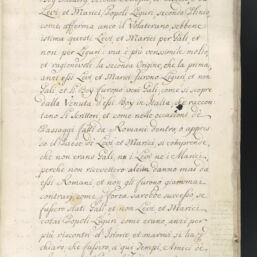 Levi, et Marici, Popoli Liguri
come afferma anco il Volaterano, sebbene
istima questi Levi, et Marici per Gali et
non per Liguri: ma è più verisimile molto,
et ragionevole la seconda Origine, che la prima,
anzi essi Levi et Marici furono Liguri et non
Gali, et li Boy furono veri Gali, come si scopre
dalla Venuta d'essi Boy in Italia, che raccon-
tano li Scrittori, et come nelle occasioni de
Passaggi fatti da Romani dentro, o appres-
so il Paese de Levi et Marici, si comprende,
che non erano Gali, ne i Levi ne i Marici,
perchè non riceverono alcun danno mai da
essi Romani, et non gli furono giammai
contrary, come a forza sarebbe successo, se
fussero stati Gali, et non Levi et Marici,
Popoli Liguri come erano, anzi per
più riscontri d'Istorie et marmi si ha
chiaro che fussero, a quei Tempi, Amici de